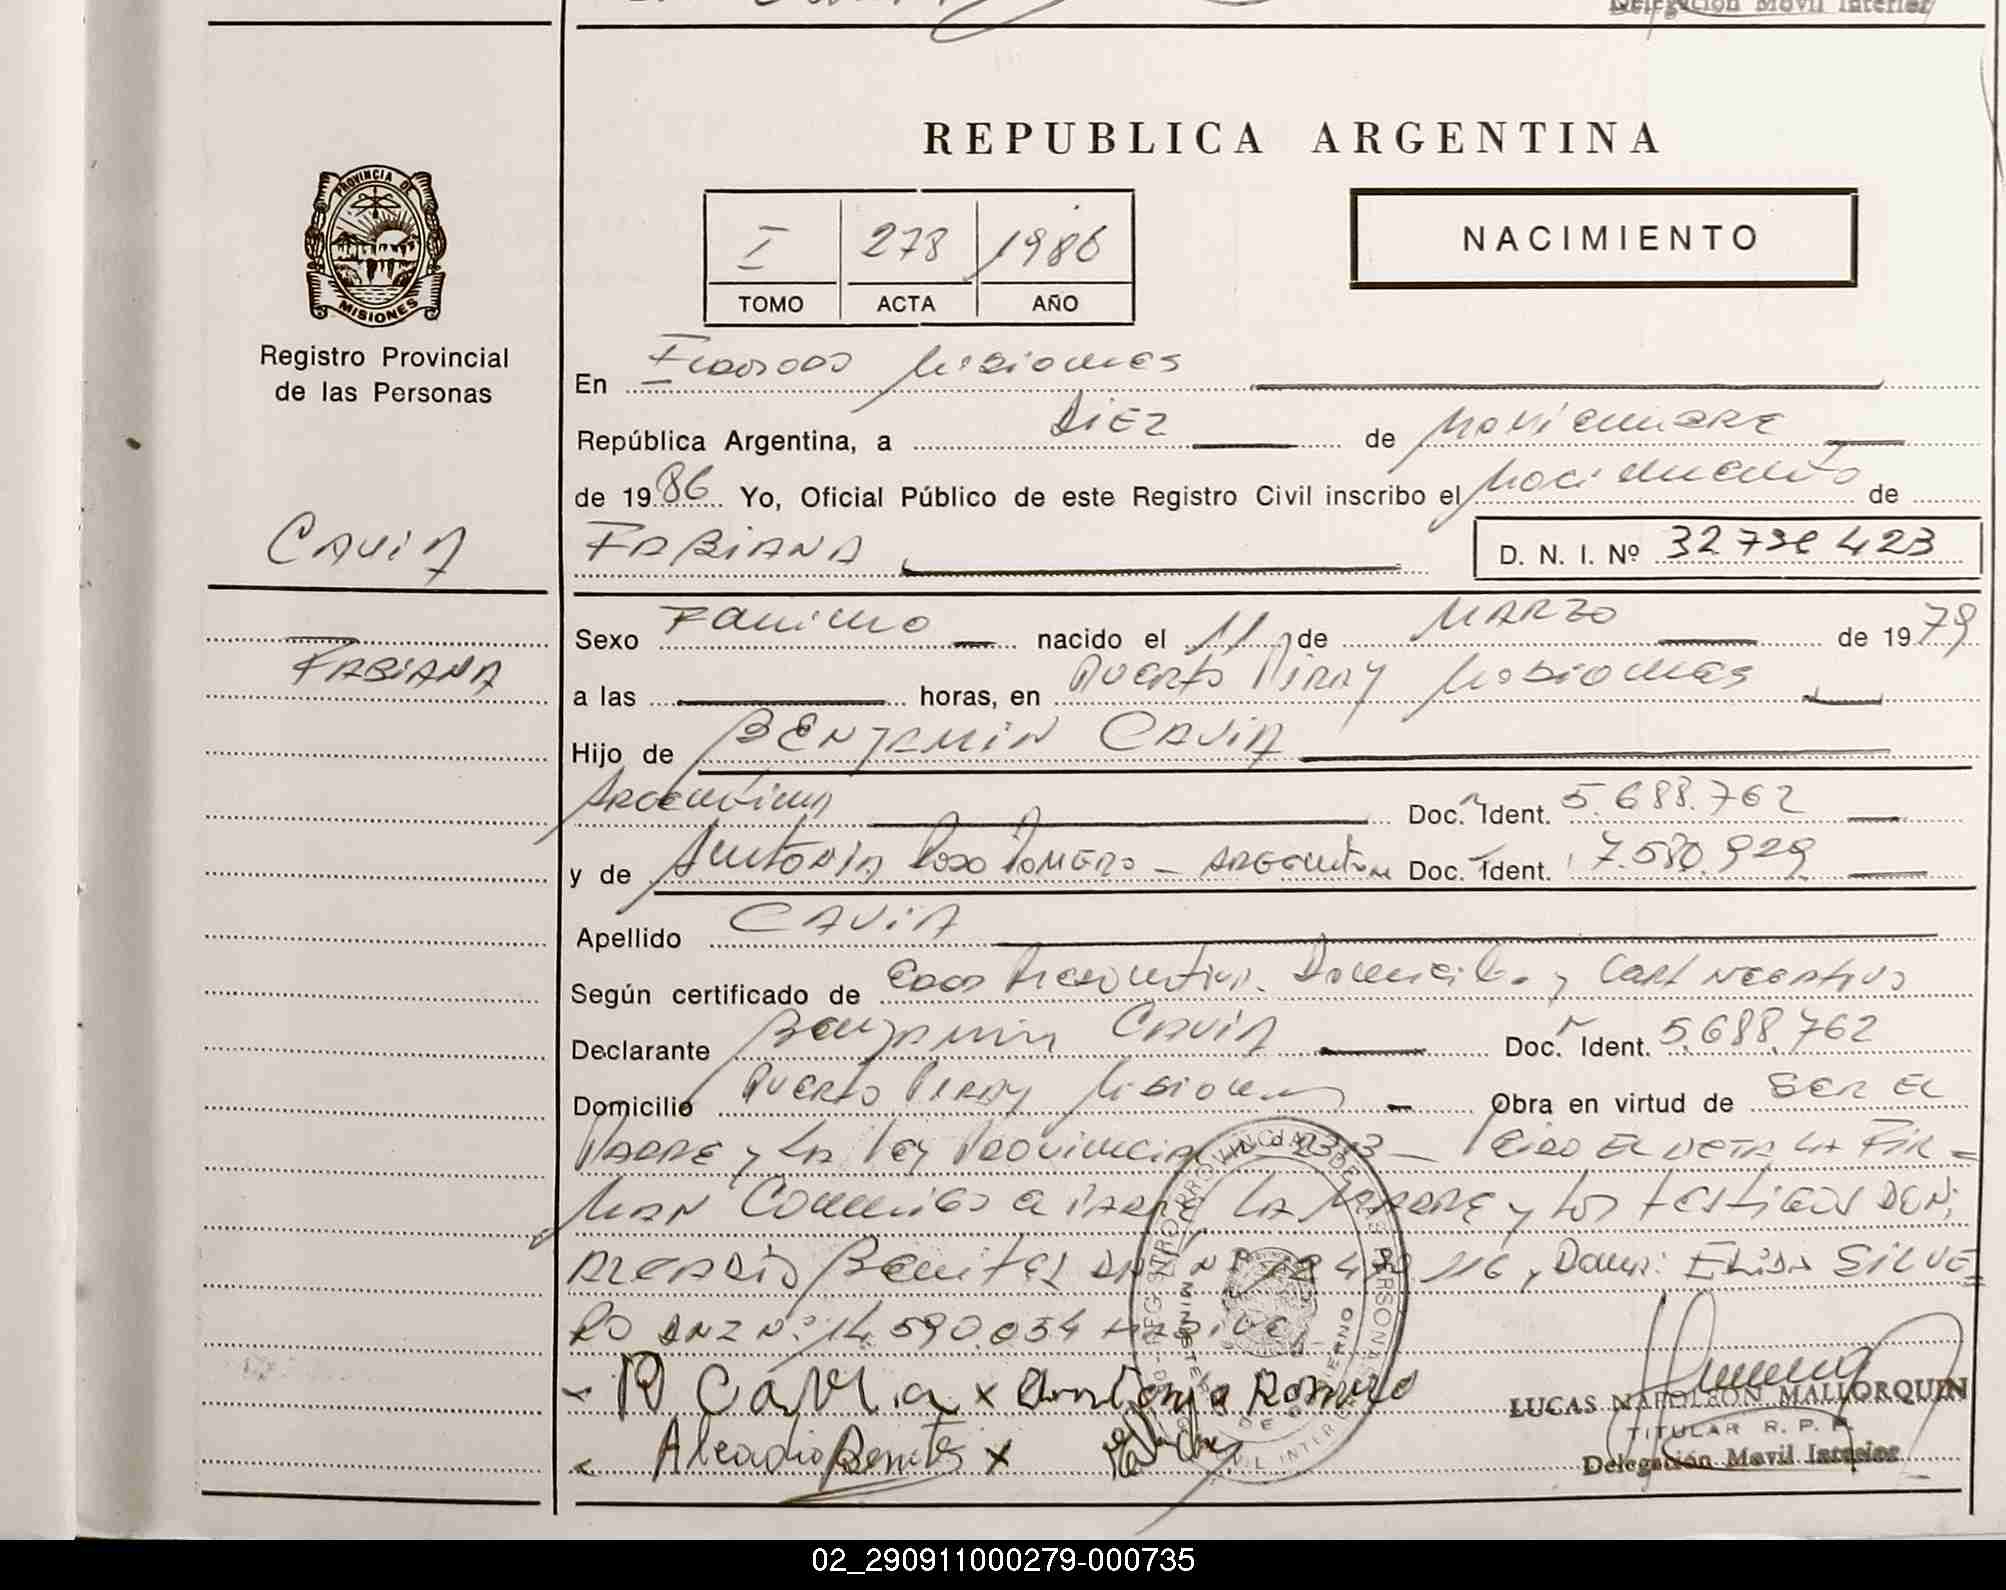 Delegación Movil Interior
REPUBLICA ARGENTINA
PROVINCIA DE
MISIONES
I 278 1986
TOMO ACTA AÑO
NACIMIENTO
Registro Provincial
de las Personas
En Misiones
República Argentina, a DIEZ de NOVIEMBRE
de 1986 Yo, Oficial Público de este Registro Civil inscribo el Nacimiento de
CAVIA
FABIANA D. N. I. Nº 423
Sexo Femenino nacido el 11 de MARZO de 1979
FABIANA
a las horas, en Puerto Piray Misiones
Hijo de BENJAMIN CAVIA
Argentino Doc. Ident. 5.688.762
y de Antonia Romero - Argentina Doc. Ident. 7.580.929
Apellido CAVIA
Según certificado de Domicilio y Cert Negativo
Declarante Benjamin CAVIA Doc. Ident. 5.688.762
Domicilio Puerto Piray Misiones Obra en virtud de SER EL
PADRE y LA Ley Provincial - LEIDO EL ACTA LA FIR=
MAN Conmigo LA MADRE y LOS TESTIGOS DON:
Benitez y Doña: ELIDA SILVE=
RO DNI Nº 14.590.054
- B Cavia x Antonia Romero
- Alcadio Benites x
REGISTRO PROVINCIAL DE LAS PERSONAS
MINISTERIO DE GOBIERNO
LUCAS NAPOLEON MALLORQUIN
TITULAR R. P. P.
Delegación Movil Interior
02_290911000279-000735